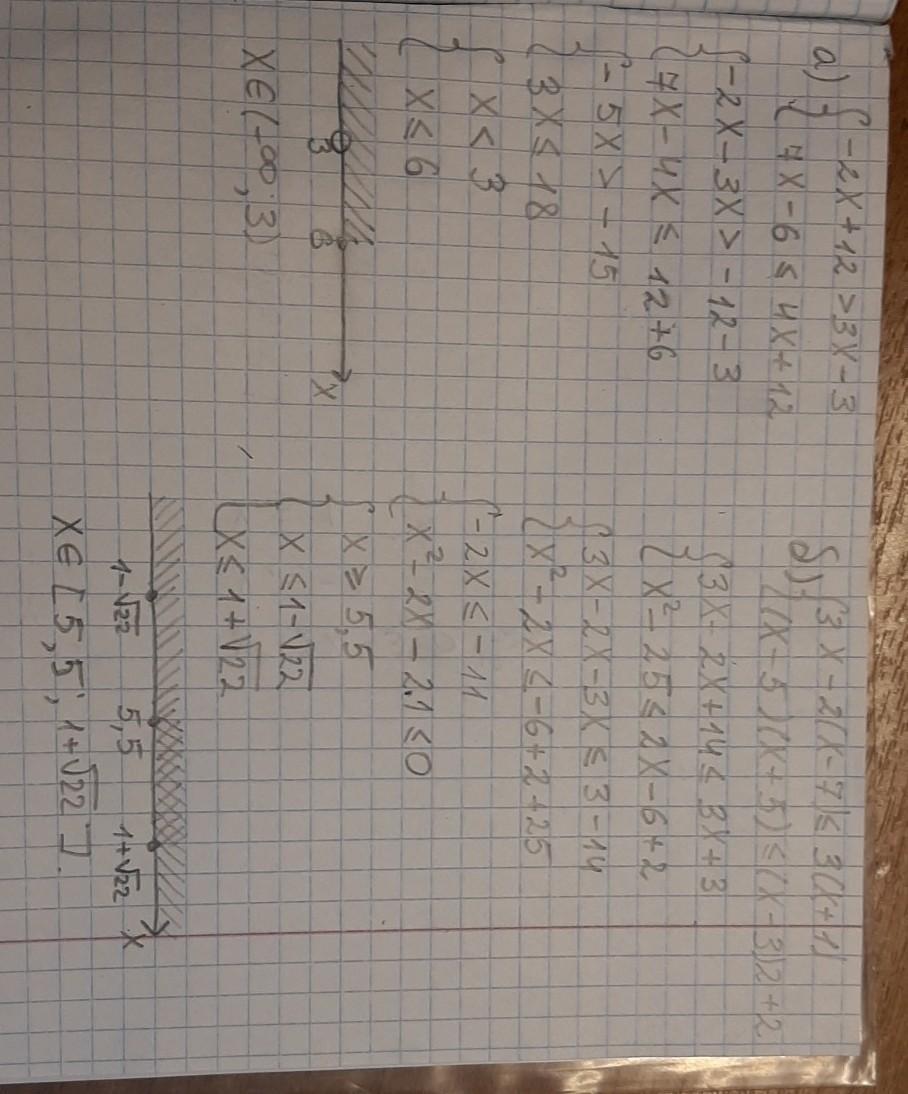 а) { -2x+12>3x-3
7x-6≤4x+12
{ -2x-3x>-12-3
7x-4x≤12+6
{ -5x>-15
3x≤18
{ x<3
x≤6
3 6 x
x∈(-∞;3)
б) { 3x-2(x-7)≤3(x+1)
(x-5)(x+5)≤(x-3)2+2
{ 3x-2x+14≤3x+3
x²-25≤2x-6+2
{ 3x-2x-3x≤3-14
x²-2x≤-6+2+25
{ -2x≤-11
x²-2x-21≤0
{ x≥5,5
{ x≤1-√22
x≤1+√22
1-√22 5,5 1+√22 x
x∈[5,5;1+√22].